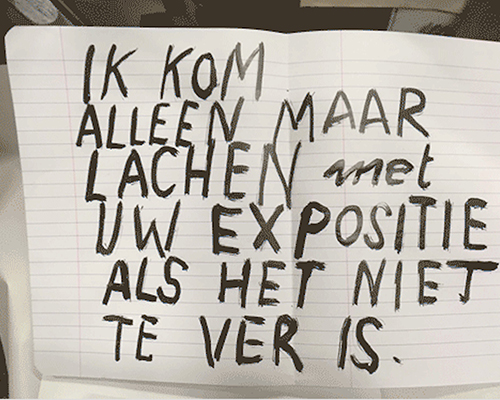 IK KOM
ALLEEN MAAR
LACHEN met
UW EXPOSITIE
ALS HET NIET
TE VER IS.